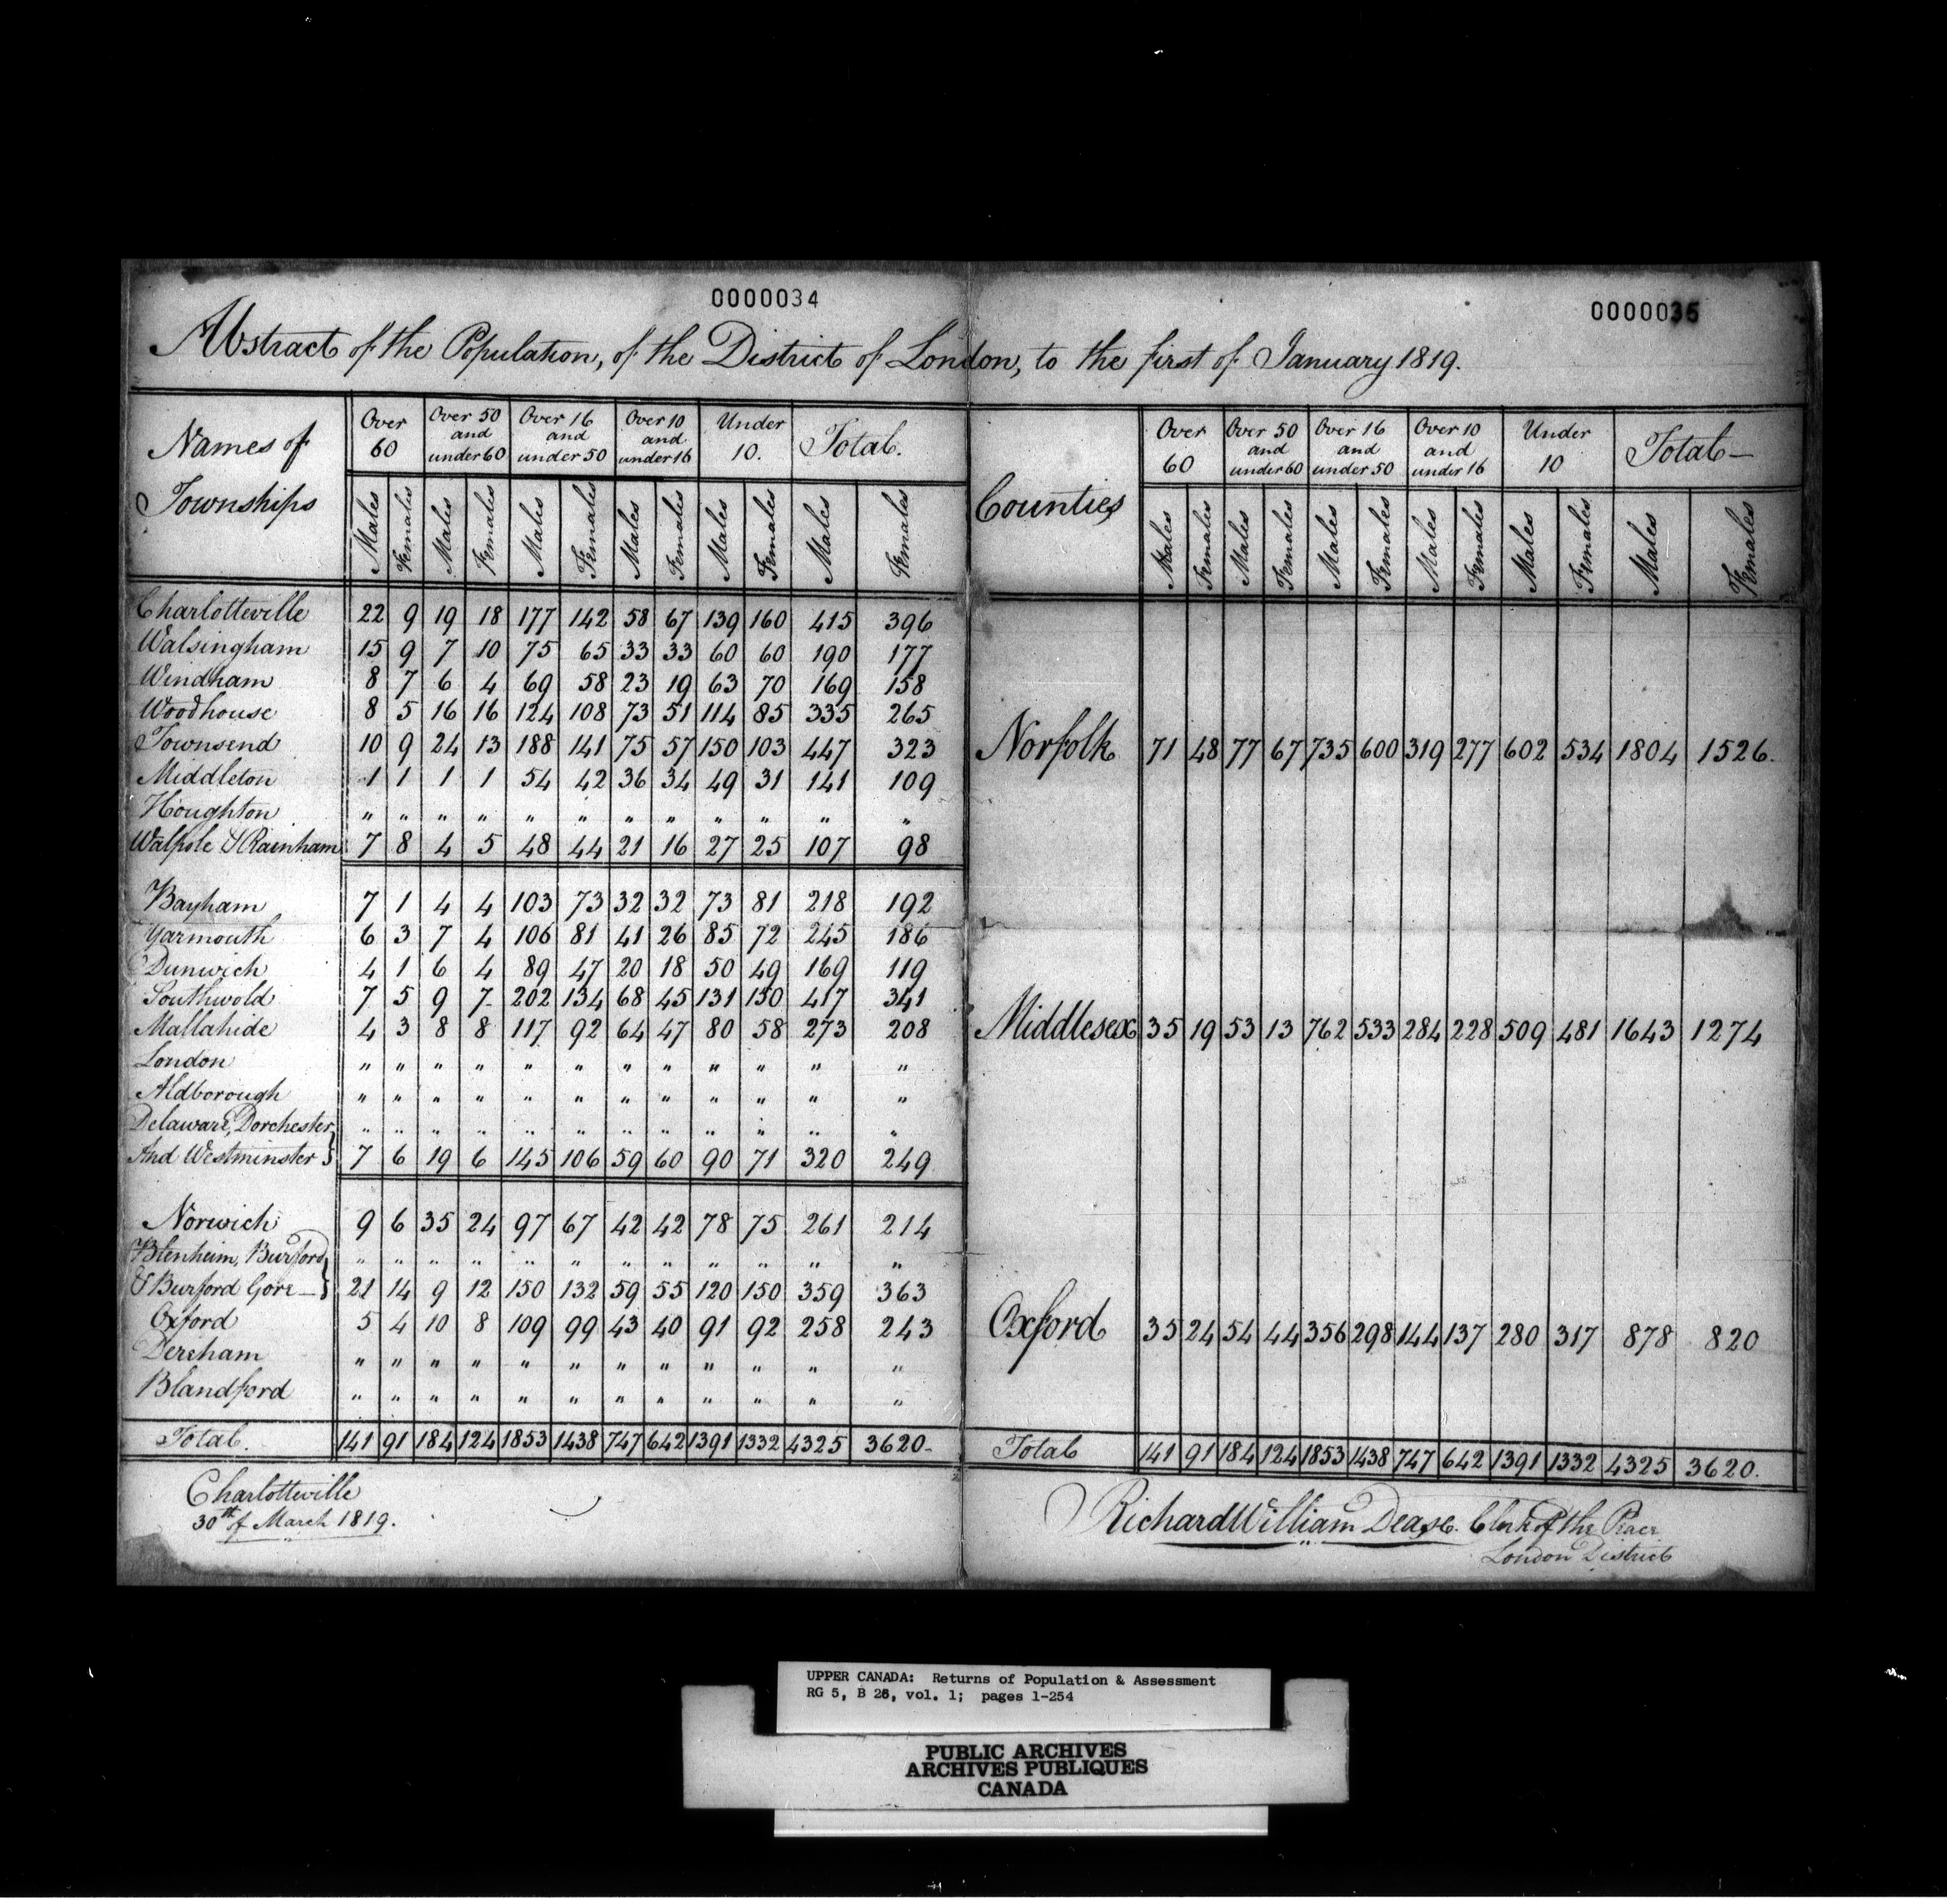 0000034
0000035
Abstract of the Population, of the District of London, to the first of January 1819.
Names of Townships | Over 60 | Over 50 and under 60 | Over 16 and under 50 | Over 10 and under 16 | Under 10. | Total.
Males Females Males Females Males Females Males Females Males Females Males Females
Charlotteville 22 9 19 18 177 142 58 67 139 160 415 396
Walsingham 15 9 7 10 75 65 33 33 60 60 190 177
Windham 8 7 6 4 69 58 23 19 63 70 169 158
Woodhouse 8 5 16 16 124 108 73 51 114 85 335 265
Townsend 10 9 24 13 188 141 75 57 150 103 447 323
Middleton 1 1 1 1 54 42 36 34 49 31 141 109
Houghton " " " " " " " " " " " "
Walpole & Rainham 7 8 4 5 48 44 21 16 27 25 107 98
Bayham 7 1 4 4 103 73 32 32 73 81 218 192
Yarmouth 6 3 7 4 106 81 41 26 85 72 245 186
Dunwich 4 1 6 4 89 47 20 18 50 49 169 119
Southwold 7 5 9 7 202 134 68 45 131 150 417 341
Mallahide 4 3 8 8 117 92 64 47 80 58 273 208
London " " " " " " " " " " " "
Aldborough " " " " " " " " " " " "
Delaware, Dorchester } " " " " " " " " " " " "
And Westminster } 7 6 19 6 145 106 59 60 90 71 320 249
Norwich 9 6 35 24 97 67 42 42 78 75 261 214
Blenheim, Burford } " " " " " " " " " " " "
& Burford Gore — } 21 14 9 12 150 132 59 55 120 150 359 363
Oxford 5 4 10 8 109 99 43 40 91 92 258 243
Dereham " " " " " " " " " " " "
Blandford " " " " " " " " " " " "
Total. 141 91 184 124 1853 1438 747 642 1391 1332 4325 3620-
Charlotteville
30th of March 1819.
Counties | Over 60 | Over 50 and under 60 | Over 16 and under 50 | Over 10 and under 16 | Under 10 | Total —
Males Females Males Females Males Females Males Females Males Females Males Females
Norfolk 71 48 77 67 735 600 319 277 602 534 1804 1526.
Middlesex 35 19 53 13 762 533 284 228 509 481 1643 1274
Oxford 35 24 54 44 356 298 144 137 280 317 878 820
Total 141 91 184 124 1853 1438 747 642 1391 1332 4325 3620.
Richard William Dease. Clerk of the Peace
London District
UPPER CANADA: Returns of Population & Assessment
RG 5, B 26, vol. 1; pages 1-254
PUBLIC ARCHIVES
ARCHIVES PUBLIQUES
CANADA